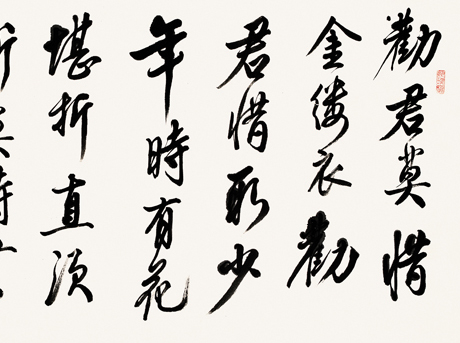 勸君莫惜
金縷衣勸
君惜取少
年時有花
堪折直須